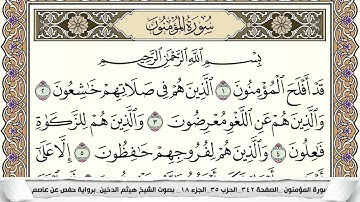 سُورَةُ المُؤْمِنُونَ
بِسْمِ ٱللَّهِ ٱلرَّحْمَٰنِ ٱلرَّحِيمِ
قَدْ أَفْلَحَ ٱلْمُؤْمِنُونَ ١ ٱلَّذِينَ هُمْ فِى صَلَاتِهِمْ خَٰشِعُونَ ٢
وَٱلَّذِينَ هُمْ عَنِ ٱللَّغْوِ مُعْرِضُونَ ٣ وَٱلَّذِينَ هُمْ لِلزَّكَوٰةِ
فَٰعِلُونَ ٤ وَٱلَّذِينَ هُمْ لِفُرُوجِهِمْ حَٰفِظُونَ ٥ إِلَّا عَلَىٰٓ
سورة المؤمنون _ الصفحة ٣٤٢ _ الحزب ٣٥ _ الجزء ١٨ _ بصوت الشيخ هيثم الدخين _ برواية حفص عن عاصم